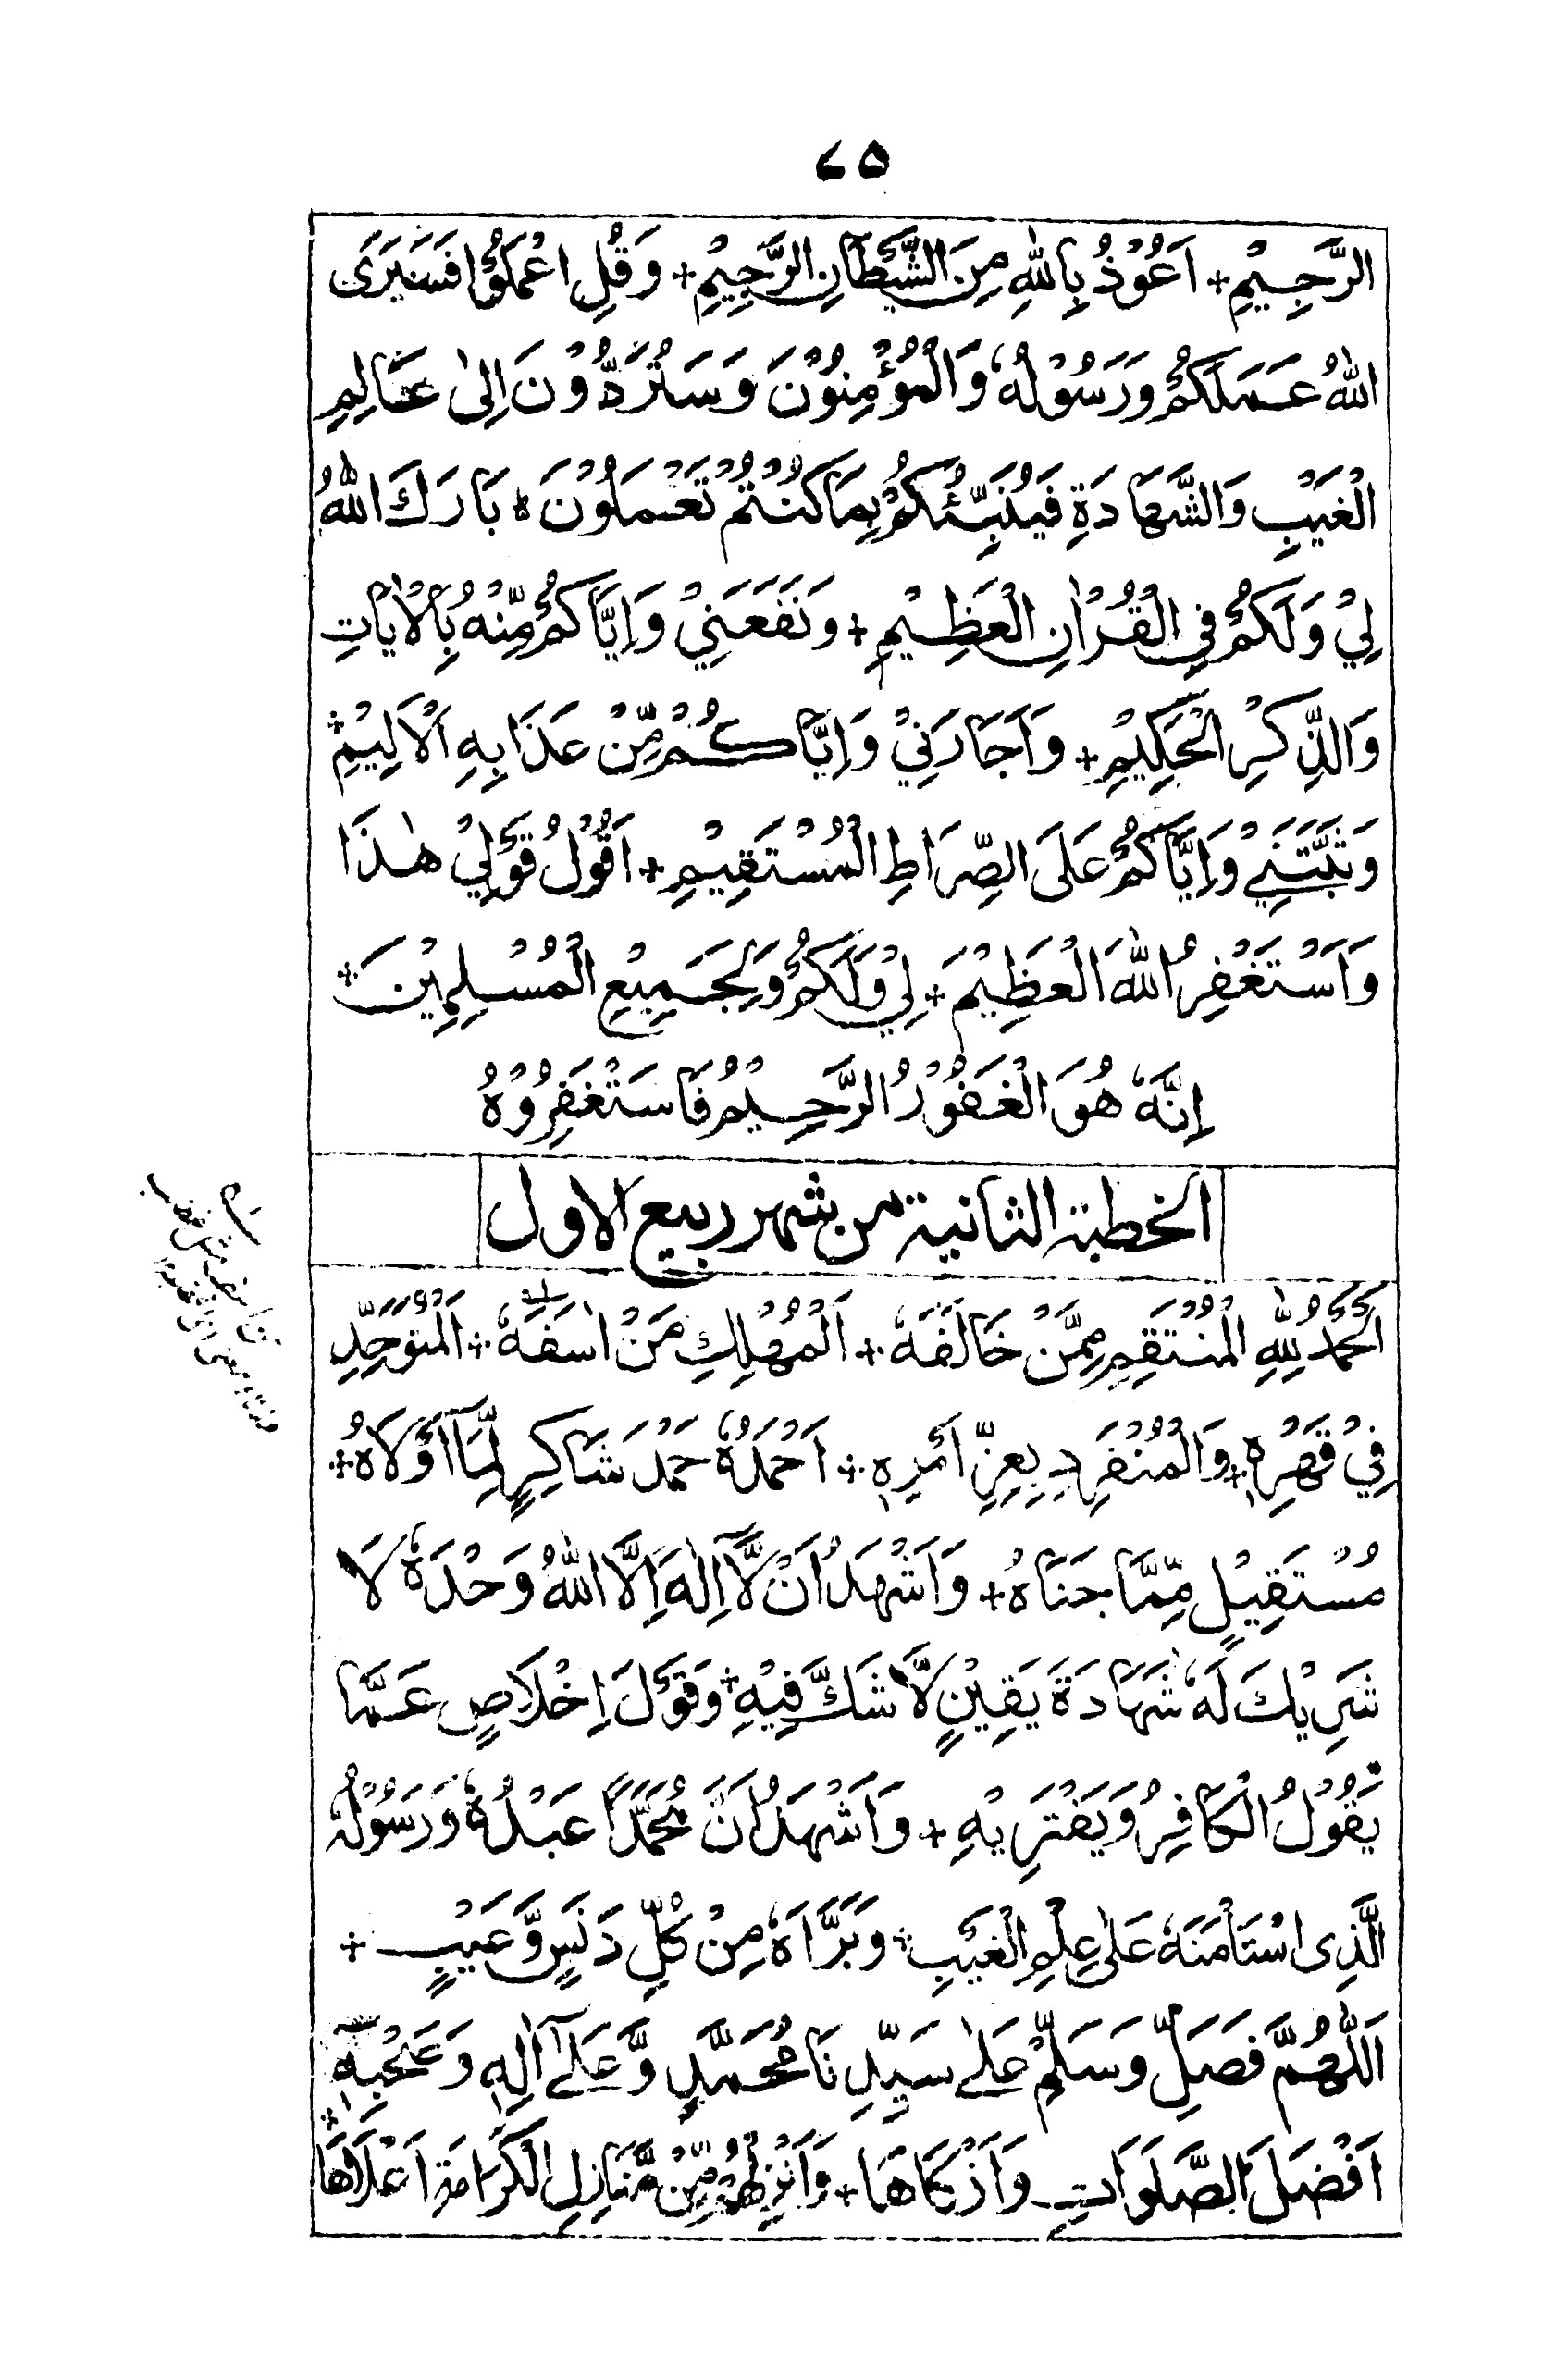 ٤٥
الرَّحِيْمِ + اَعُوْذُ بِاللّٰهِ مِنَ الشَّيْطَانِ الرَّجِيْمِ + وَقُلِ اعْمَلُوْا فَسَيَرَى
اللّٰهُ عَمَلَكُمْ وَرَسُوْلُهٗ وَالْمُؤْمِنُوْنَ وَسَتُرَدُّوْنَ اِلىٰ عَالِمِ
الْغَيْبِ وَالشَّهَادَةِ فَيُنَبِّئُكُمْ بِمَا كُنْتُمْ تَعْمَلُوْنَ ٥ بَارَكَ اللّٰهُ
لِيْ وَلَكُمْ فِي الْقُرْاٰنِ الْعَظِيْمِ + وَنَفَعَنِيْ وَاِيَّاكُمْ مِّنْهُ بِالْاٰيَاتِ
وَالذِّكْرِ الْحَكِيْمِ + وَاَجَارَنِيْ وَاِيَّاكُمْ مِّنْ عَذَابِهِ الْاَلِيْمِ +
وَثَبَّتَنِيْ وَاِيَّاكُمْ عَلَى الصِّرَاطِ الْمُسْتَقِيْمِ + اَقُوْلُ قَوْلِيْ هٰذَا
وَاَسْتَغْفِرُ اللّٰهَ الْعَظِيْمَ + لِيْ وَلَكُمْ وَلِجَمِيْعِ الْمُسْلِمِيْنَ +
اِنَّهٗ هُوَ الْغَفُوْرُ الرَّحِيْمُ فَاسْتَغْفِرُوْهُ
الخطبة الثانية من شهر ربيع الاول
اَلْحَمْدُ لِلّٰهِ الْمُنْتَقِمِ مِمَّنْ خَالَفَهٗ + اَلْمُهْلِكِ مَنْ اٰسَفَهٗ + اَلْمُتَوَحِّدِ
فِيْ قَهْرِهٖ + وَالْمُنْفَرِدِ بِعِزِّ اَمْرِهٖ + اَحْمَدُهٗ حَمْدَ شَاكِرٍ لِّمَا اَوْلَاهُ +
مُسْتَقِيْلٍ مِّمَّا جَنَاهُ + وَاَشْهَدُ اَنْ لَّا اِلٰهَ اِلَّا اللّٰهُ وَحْدَهٗ لَا
شَرِيْكَ لَهٗ شَهَادَةَ يَقِيْنٍ لَّا شَكَّ فِيْهِ + وَقَوْلَ اِخْلَاصٍ عَمَّا
يَقُوْلُ الْكَافِرُ وَيَفْتَرِيْهِ + وَاَشْهَدُ اَنَّ مُحَمَّدًا عَبْدُهٗ وَرَسُوْلُهُ
الَّذِى اسْتَاْمَنَهٗ عَلىٰ عِلْمِ الْغَيْبِ + وَبَرَّاَهٗ مِنْ كُلِّ دَنَسٍ وَّعَيْبٍ +
اَللّٰهُمَّ فَصَلِّ وَسَلِّمْ عَلىٰ سَيِّدِنَا مُحَمَّدٍ وَّعَلىٰ اٰلِهٖ وَصَحْبِهٖ
اَفْضَلَ الصَّلَوَاتِ وَاَزْكَاهَا + وَاَنْزِلْهُمْ مِّنْ مَّنَازِلِ الْكَرَامَةِ اَعْلَاهَا +